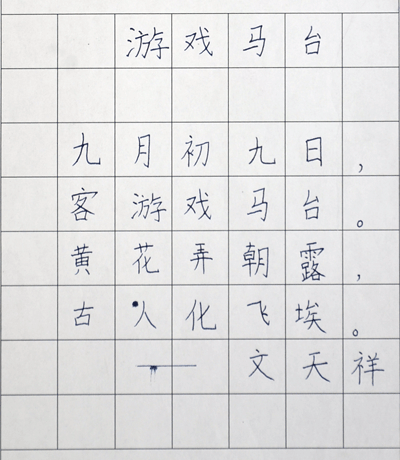 游戏马台
九月初九日，
客游戏马台。
黄花弄朝露，
古人化飞埃。
——文天祥